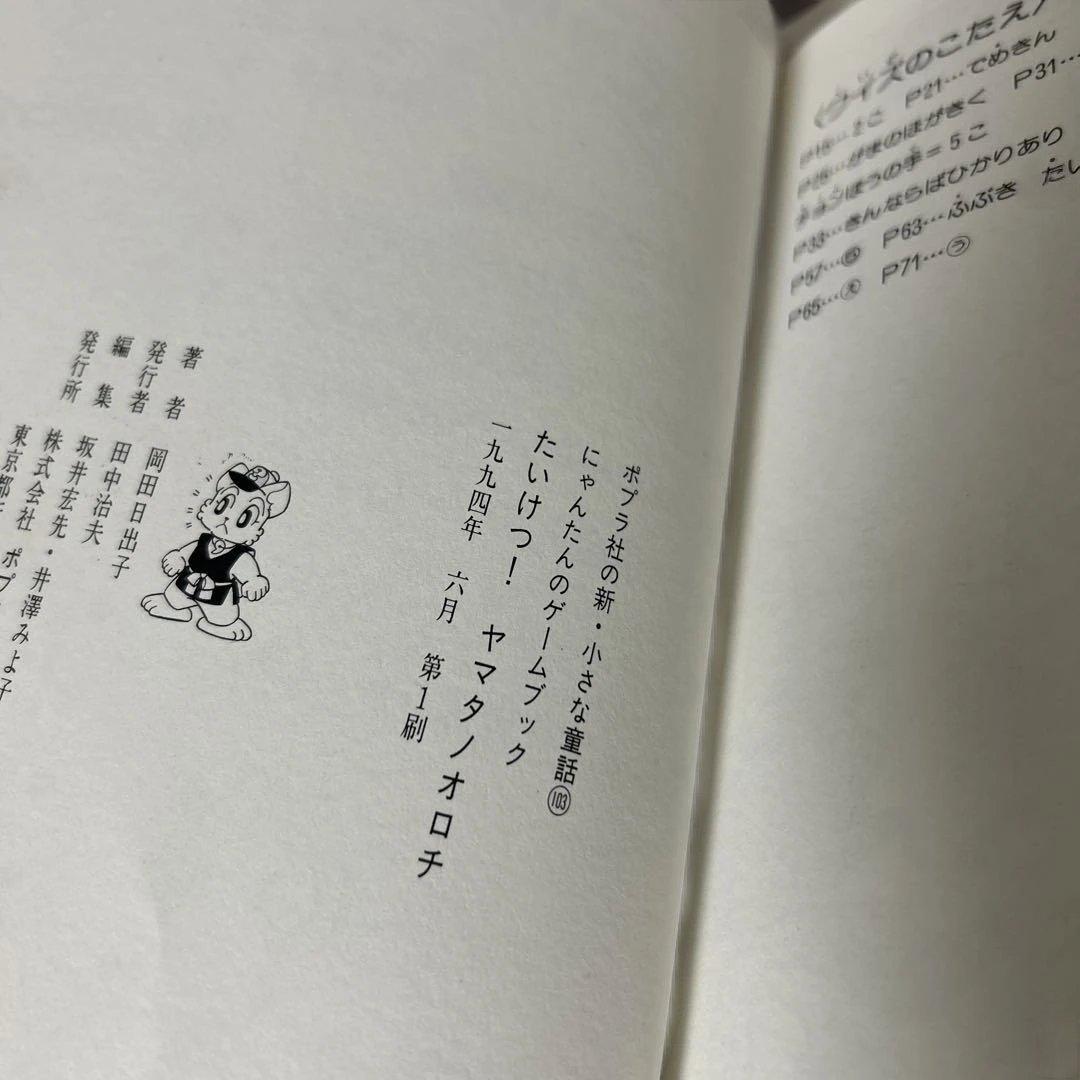 クイズのこたえ
P21…でめきん
P31…
がまのほがきく
ぽうの手=5こ
P33…きんならばひかりあり
P57…
P63…ふぶき たい
P65…
P71…う
ポプラ社の新・小さな童話103
にゃんたんのゲームブック
たいけつ! ヤマタノオロチ
一九九四年 六月 第1刷
著者 岡田日出子
発行者 田中治夫
編集 坂井宏先・井澤みよ子
発行所 株式会社 ポプ
東京都